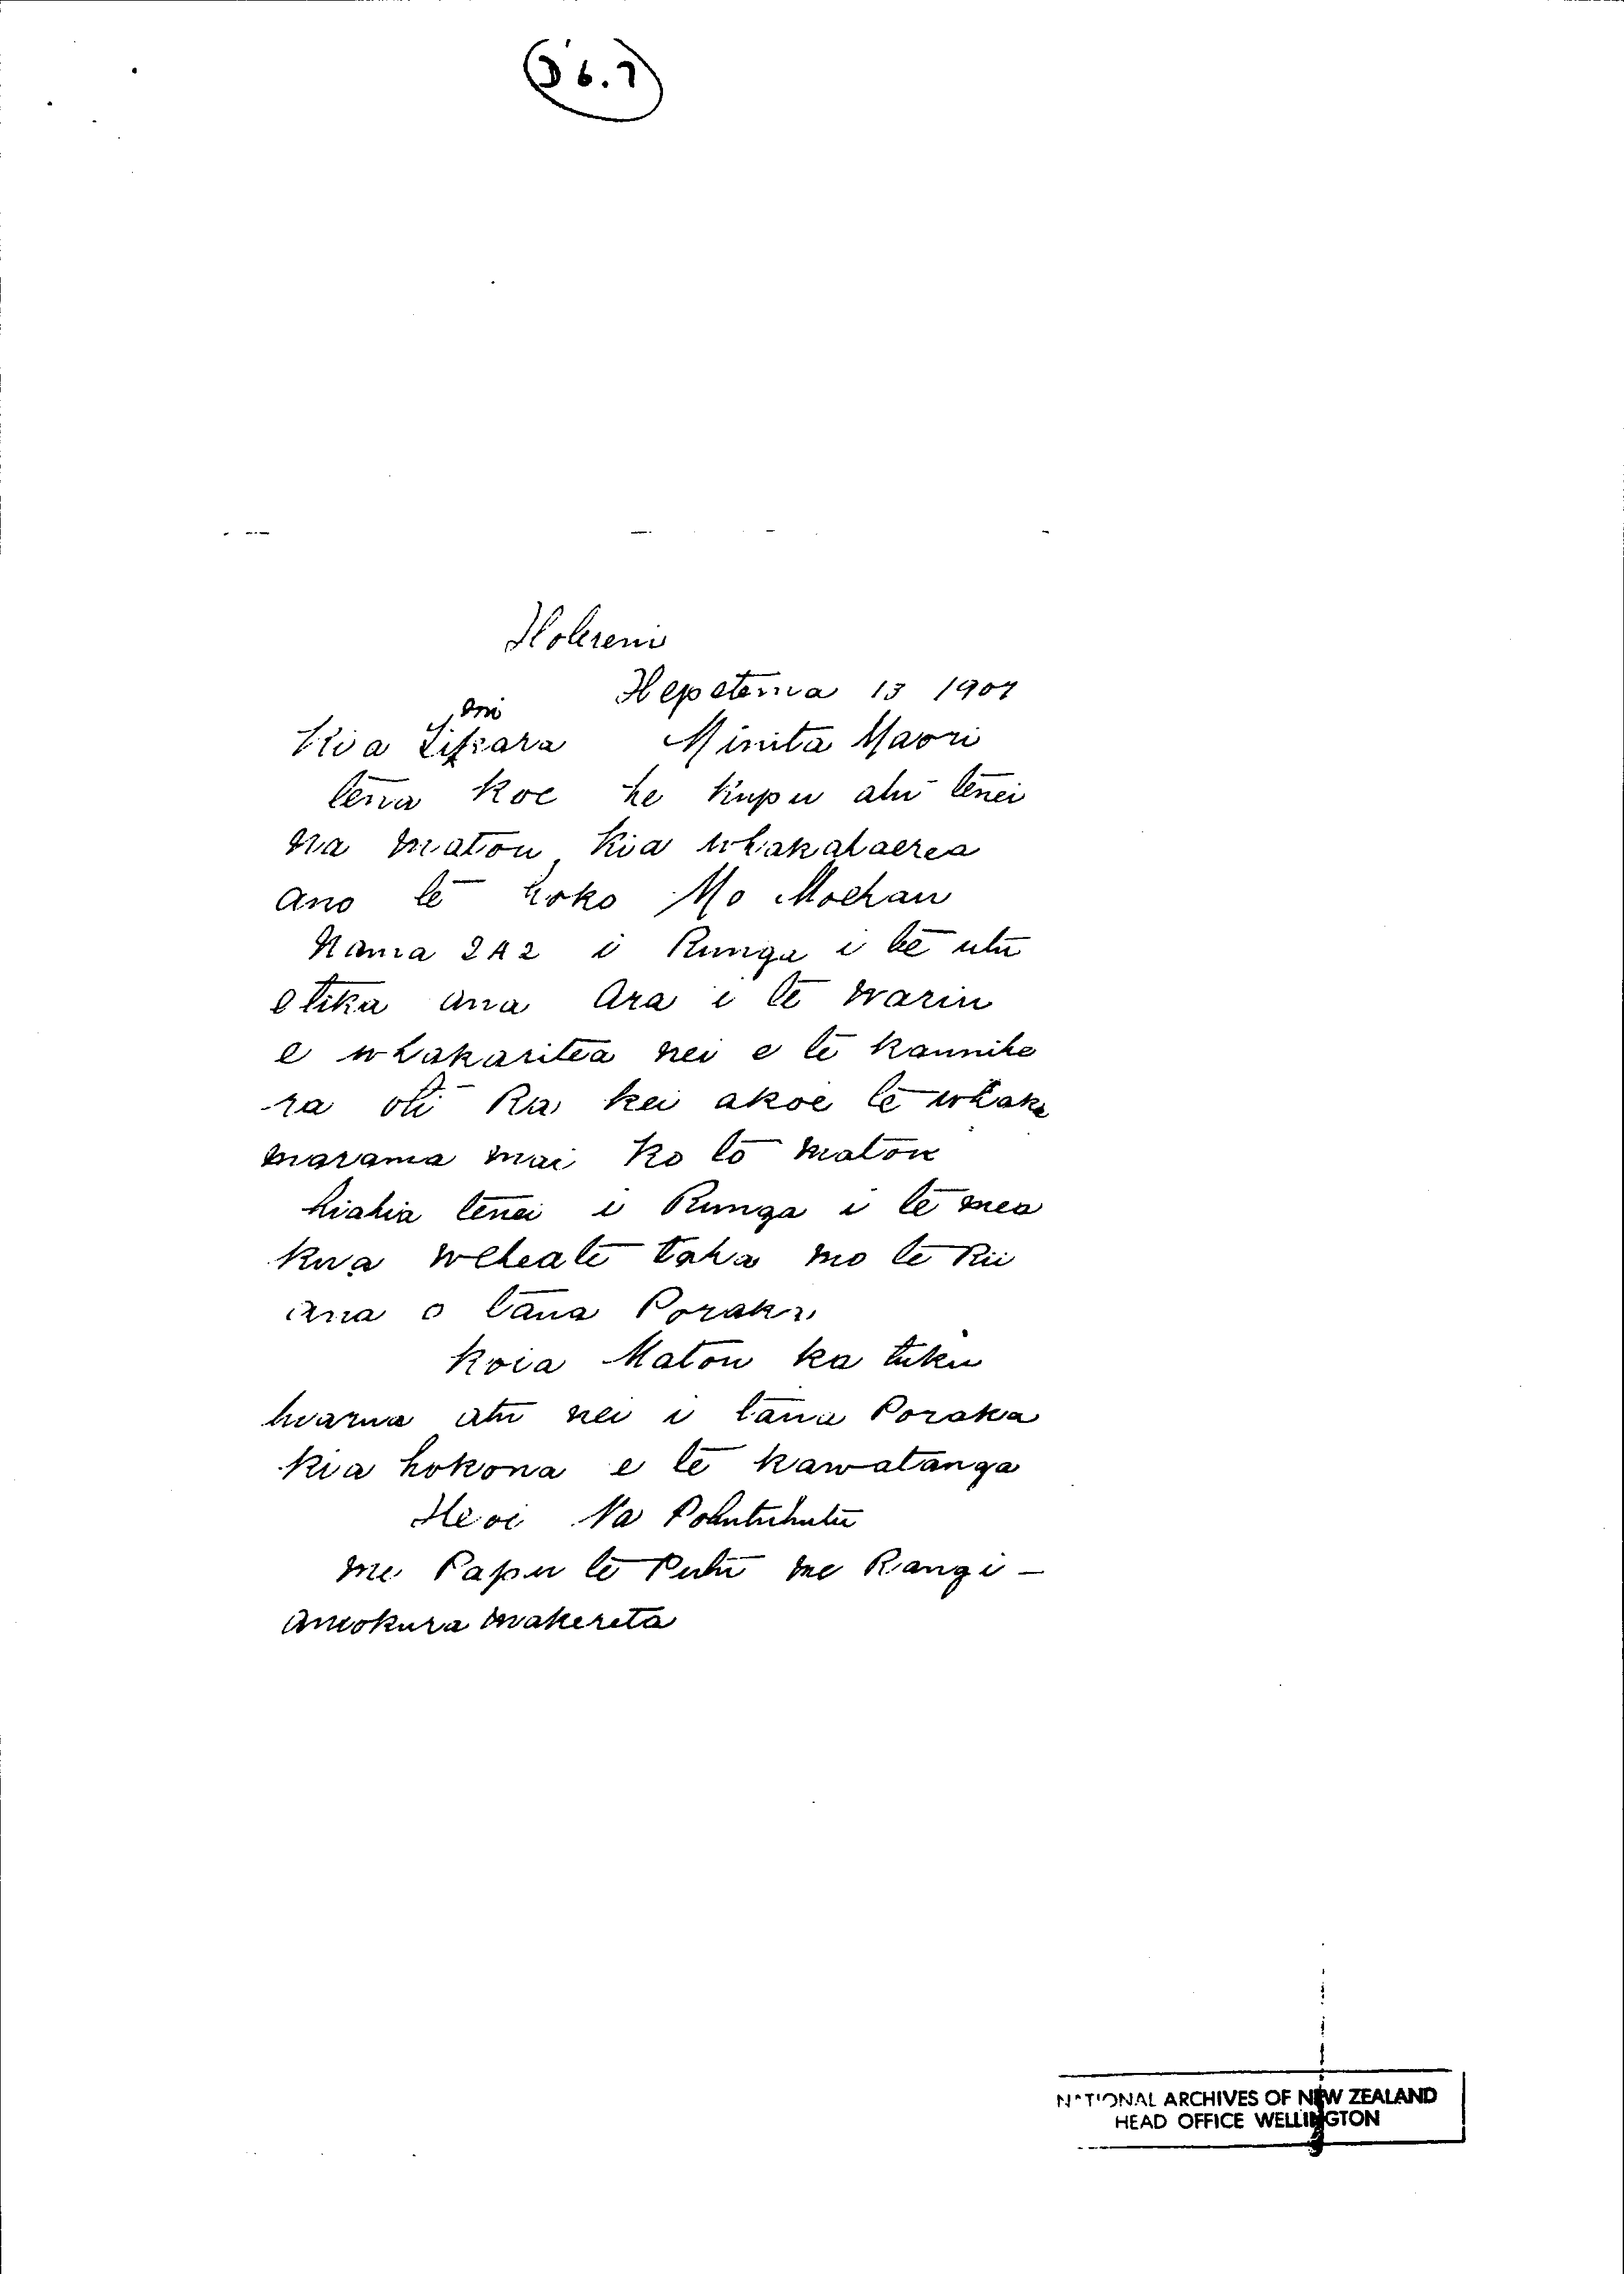 (D6.7)
Hokreni
Hepetema 13 1907
Kia Timi Kara Minita Maori
tena koe he kupu atu tenei
na matou kia whakataerea
ano te hoko Mo Moehau
Nama 2A2 i Runga i te utu
e tika ana Ara i te wariu
e whakaritea nei e te kaunihe
ra oti Ra kei akoe te whaka
marama mai ko to matou
hiahia tenei i Runga i te mea
kua weheate taha mo te Rii
ana o taua Poraka
koia Matou ka tuku
huarua atu nei i taua Poraka
kia hokona e te kawatanga
Heoi Na Pohutuhutu
me Papu te Putu me Rangi-
amokura makereta
NATIONAL ARCHIVES OF NEW ZEALAND
HEAD OFFICE WELLINGTON